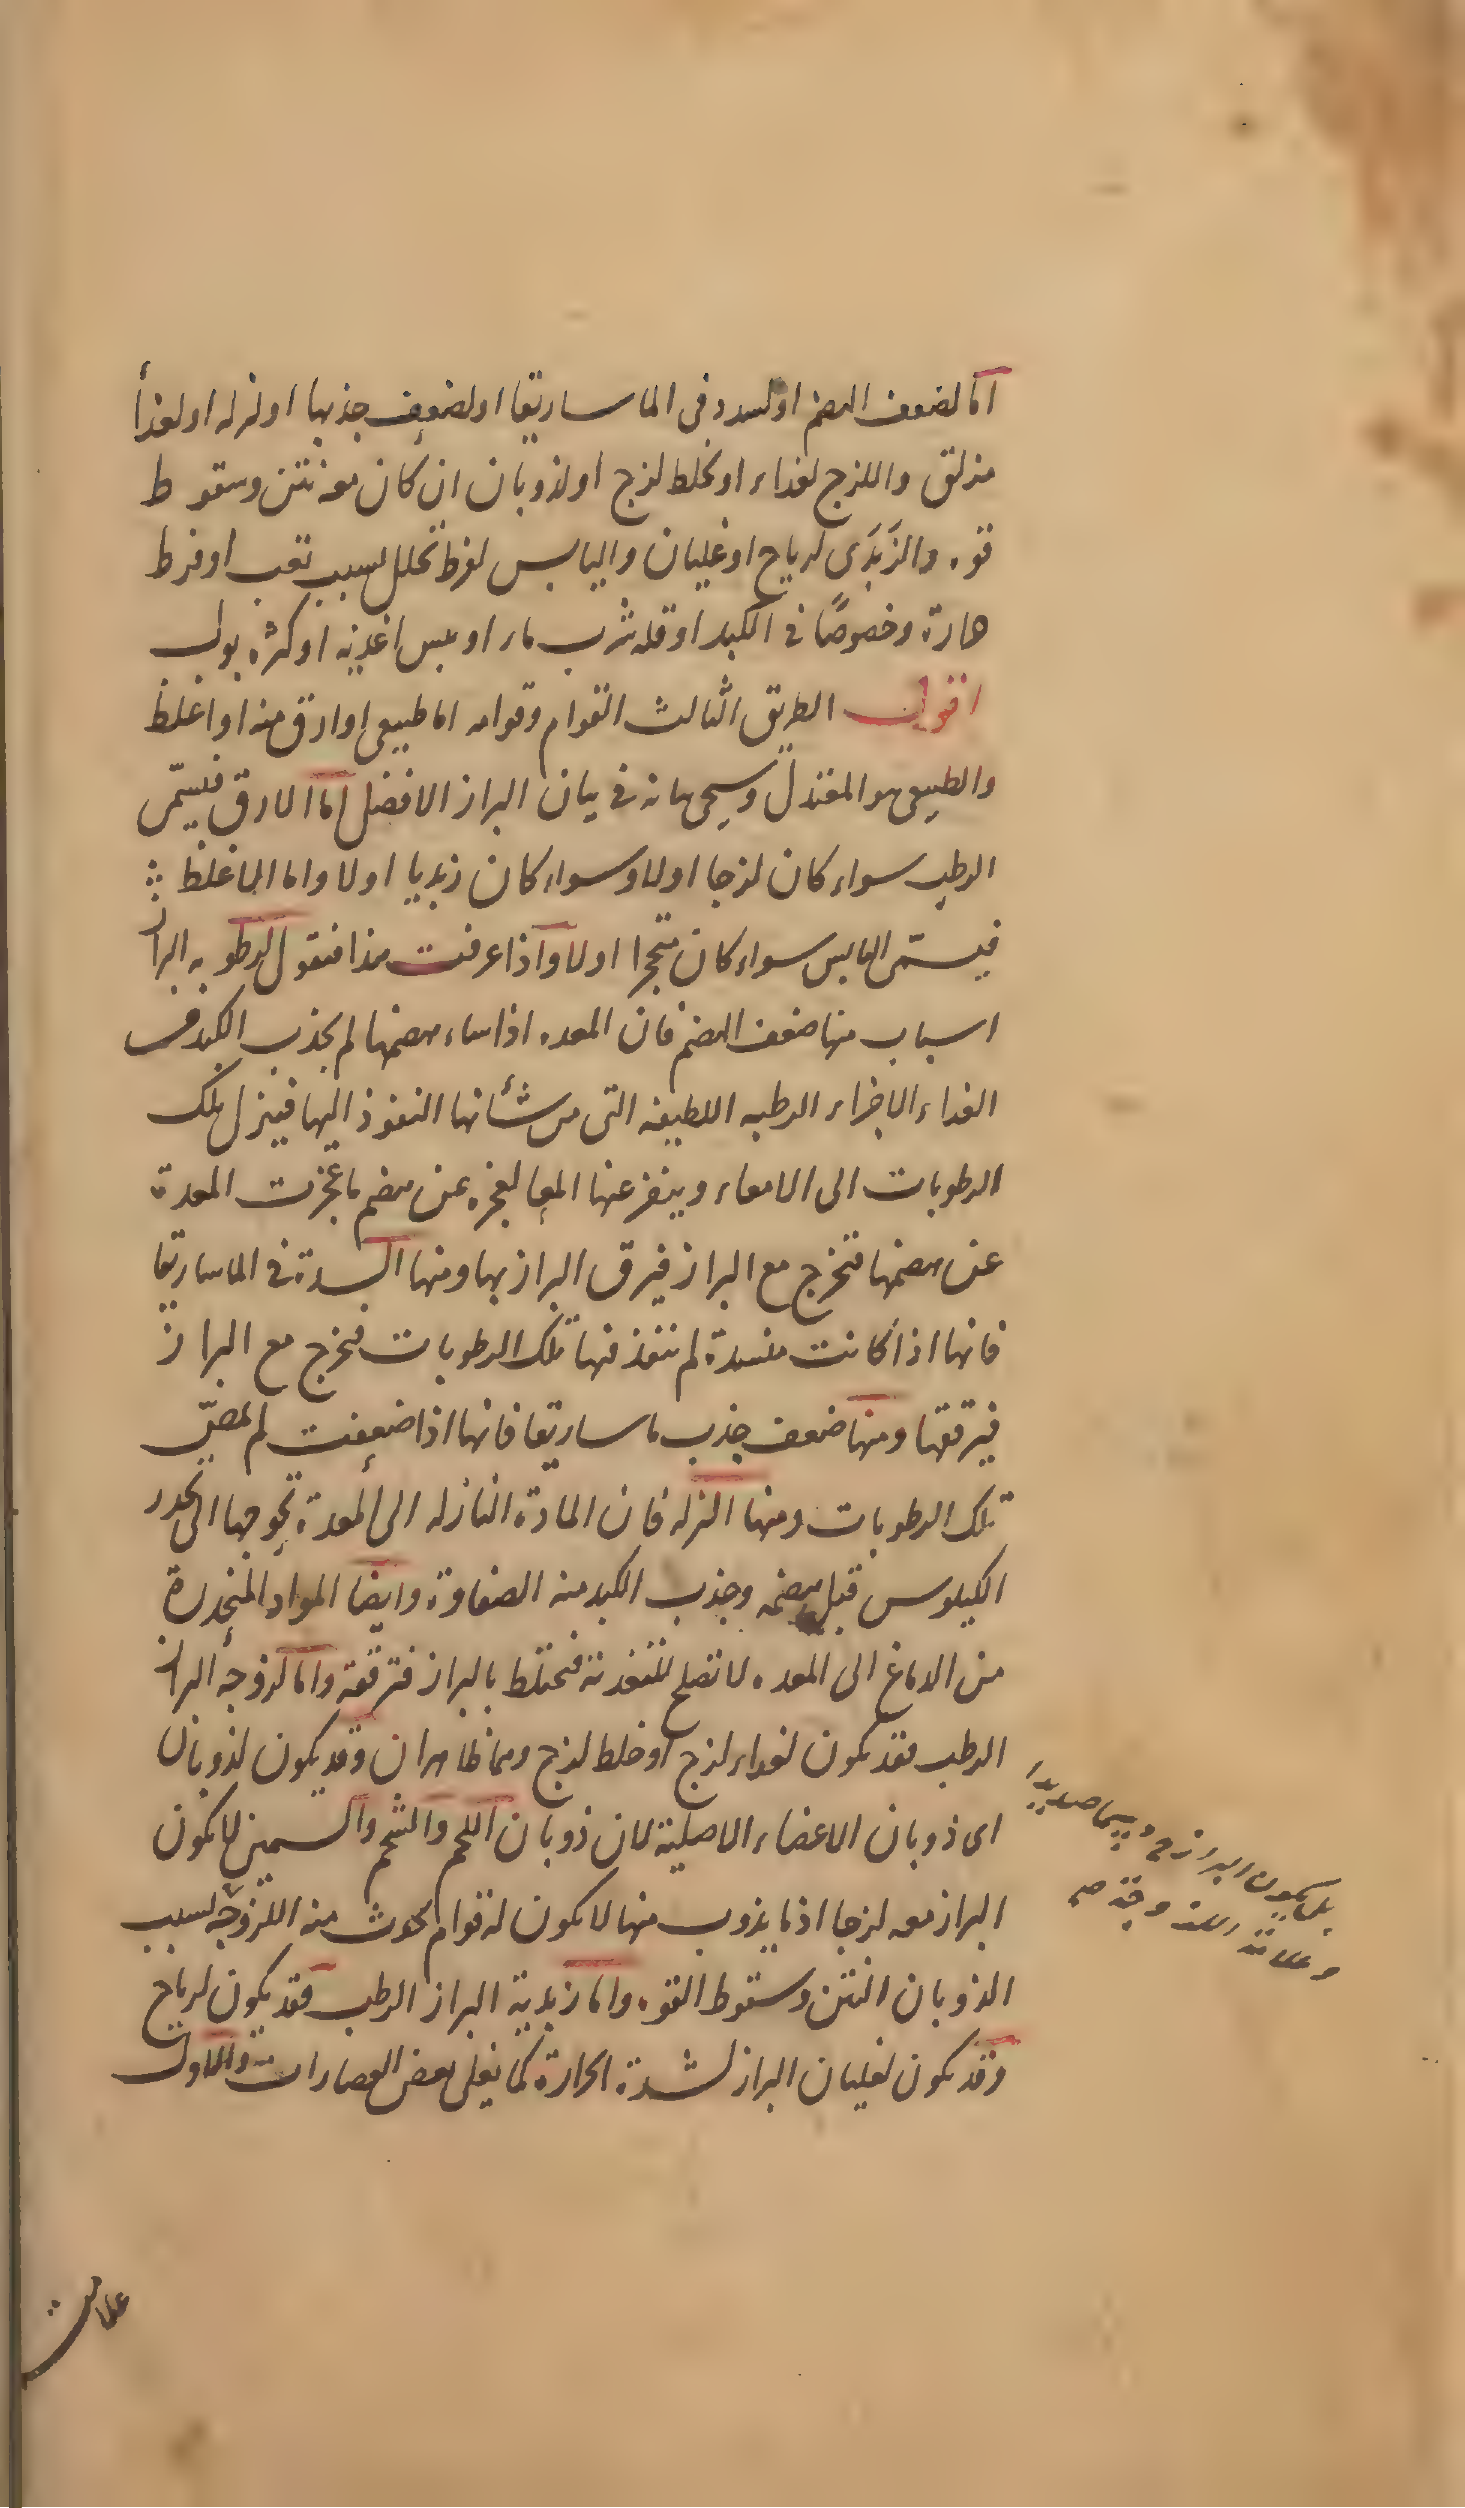 اما لضعف الهضم او لسدد فى الماساريقا او لضعف جذبها او لنزله او لغذأ
مزلق واللزج لغداء او لخلط لزج او لذوبان ان كان معه نتن وسقوط
قوه والزَبَدَى لرياح او غليان واليابس لفرط تحلل بسبب تعب او فرط
حارة وخصوصًا فى الكبد او قله شرب ماء او يبس اغذيه او كثره بول
اقول الطريق الثالث القوام وقوامه اما طبيعى او ارق منه او اغلظ
والطبيعى هو المعتدل وسيجى بيانه فى بيان البراز الافضل اما الارق فيسمّى
الرطب سواء كان لزجا اولا وسواء كان زبديا اولا واما الاغلظ
فيسمّى اليابس سواء كان متحجرا اولا واذا عرفت هذا فنقول لرطوبه البراز
اسباب منها ضعف الهضم فان المعده اذا ساء هضمها لم يجذب الكبد من
الغداء الاجزاء الرطبه اللطيفه التى من شأنها النفوذ اليها فينزل تلك
الرطوبات الى الامعاء وينفر عنها المعا لعجزه عن هضم ما عجزت المعدة
عن هضمها فتخرج مع البراز فيرق البراز بها ومنها السدة فى الماساريقا
فانها اذا كانت منسدة لم تنفذ فيها تلك الرطوبات فتخرج مع البراز
فيرققها ومنها ضعف جذب ماساريقا فانها اذا ضعفت لم تمصّ
تلك الرطوبات ومنها النزله فان المادة النازله الى المعدة تحوجها الى حدر
الكيلوس قبل هضمه وجذب الكبد منه الصفاوة وايضا المواد المنحدرة
من الدماغ الى المعده لا تصلح للتغذية فتختلط بالبراز فترققه واما لزوجة البراز
الرطب فقد يكون لغداء لزج او خلط لزج وهما ظاهران وقد يكون لذوبان
اى ذوبان الاعضاء الاصلية لان ذوبان اللحم والشحم والسمين لا يكون
البراز معه لزجا اذ ما يذوب منها لا يكون له قوام يحدث منه اللزوجه بسبب
الذوبان النتن وسقوط القوه واما زبدية البراز الرطب فقد يكون لرياح
وقد يكون لغليان البراز لشدة الحرارة كما يغلى بعض العصارات والاول
بل يكون البراز ح دسما صديديا
وعلامة